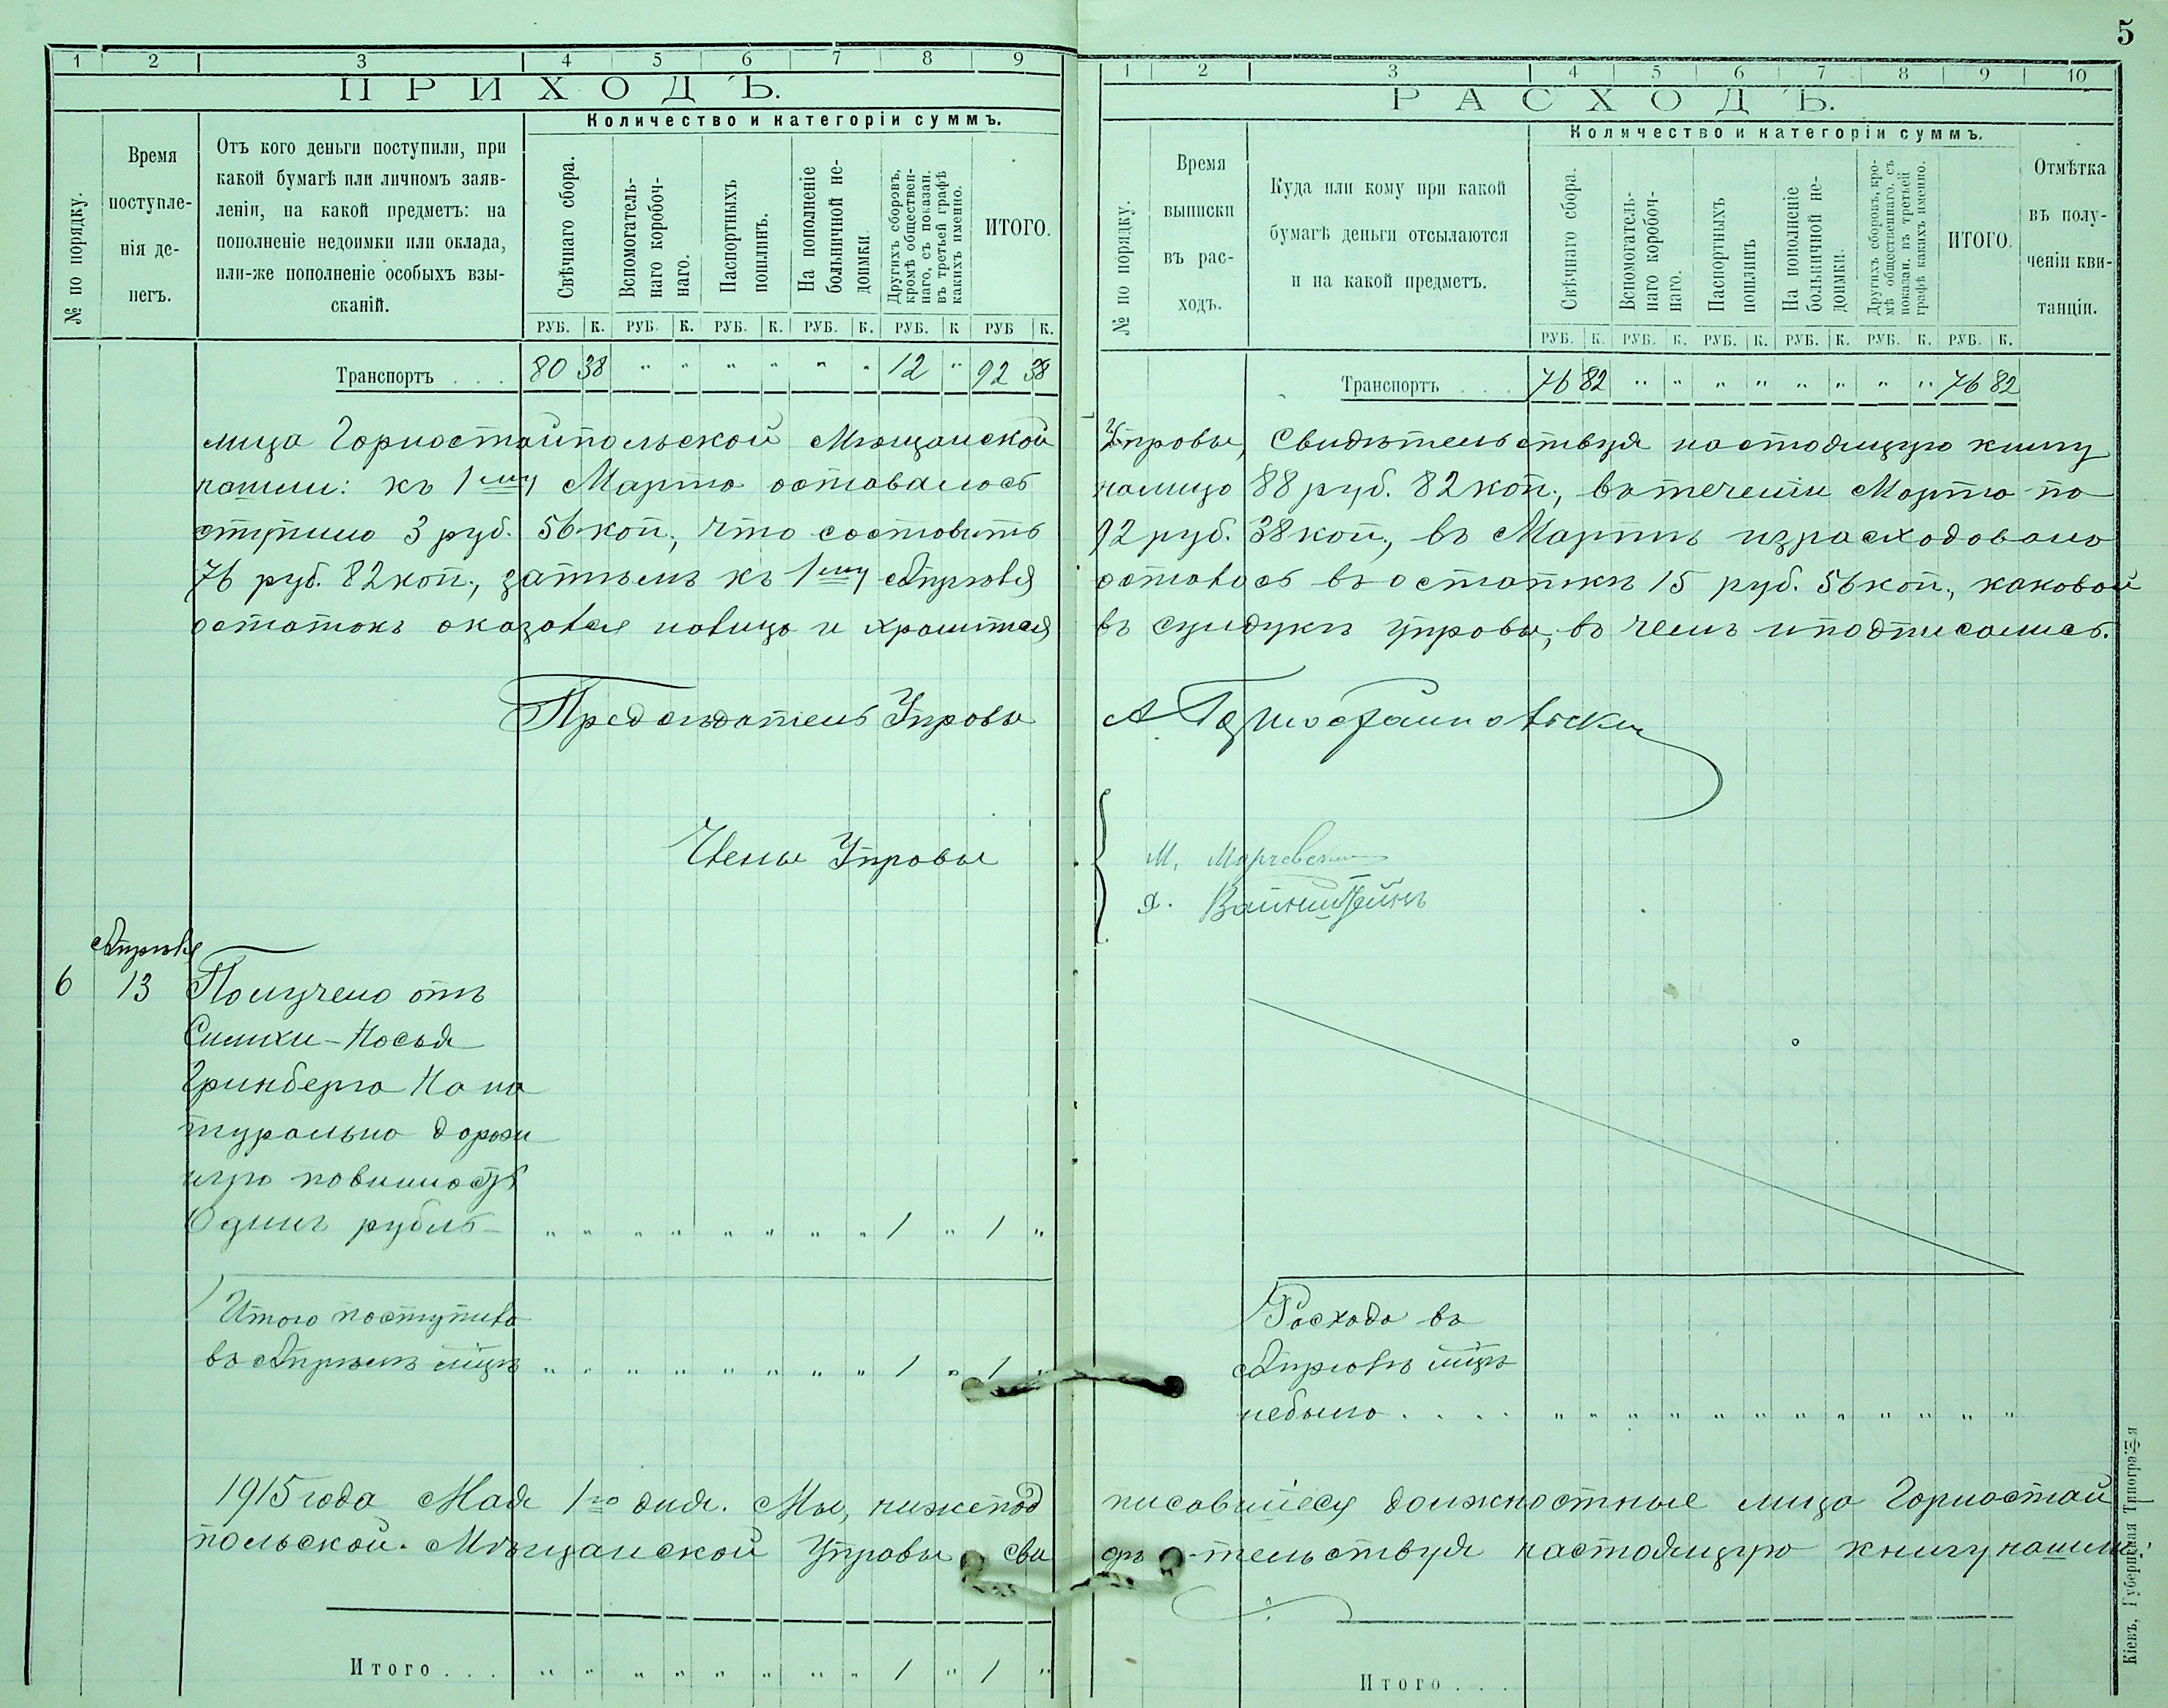 5
1 2 3 4 5 6 7 8 9
ПРИХОДЪ.
Количество и категоріи суммъ.
№ по порядку.
Время
поступле-
нія де-
негъ.
Отъ кого деньги поступили, при
какой бумагѣ или личномъ заяв-
леніи, на какой предметъ: на
пополненіе недоимки или оклада,
или-же пополненіе особыхъ взы-
сканій.
Свѣчнаго сбора.
Вспомогатель-
наго коробоч-
наго.
Паспортныхъ
пошлинъ.
На пополненіе
больничной не-
доимки.
Другихъ сборовъ,
кромѣ обществен-
наго, съ показан.
въ третьей графѣ
какихъ именно.
ИТОГО.
РУБ. К. РУБ. К. РУБ. К. РУБ. К. РУБ. К РУБ К.
Транспортъ . . . 80 38 " " " " " " 12 " 92 38
1 2 3 4 5 6 7 8 9 10
РАСХОДЪ.
Количество и категоріи суммъ.
№ по порядку.
Время
выписки
въ рас-
ходъ.
Куда или кому при какой
бумагѣ деньги отсылаются
и на какой предметъ.
Свѣчнаго сбора.
Вспомогатель-
наго коробоч-
наго.
Паспортныхъ
пошлинъ
На пополненіе
больничной не-
доимки.
Другихъ сборовъ, кро-
мѣ общественнаго, съ
показан. въ третьей
графѣ какихъ именно.
ИТОГО.
Отмѣтка
въ полу-
ченіи кви-
танціи.
РУБ. К. РУБ. К. РУБ. К. РУБ. К. РУБ. К. РУБ. К.
Транспортъ . . . 76 82 " " " " " " " " 76 82
лица Горностайпольской Мѣщанской Управы, свидѣтельствуя настоящую книгу
нашли: къ 1му Марта оставалось налицо 88 руб. 82 коп., въ теченіи Марта по
ступило 3 руб. 56 коп., что составитъ 92 руб. 38 коп., въ Мартѣ израсходовано
76 руб. 82 коп., затѣмъ къ 1му Апрѣля осталось въ остаткѣ 15 руб. 56 коп., каковой
остатокъ оказался налицо и хранится въ сундукѣ управы, въ чемъ и подписались.
Предсѣдатель Управы А. Горностайпольскій
Члены Управы
М.
Я. Вайнштейнъ
Апрѣля
6 13 Получено отъ
Симхи-Іосья
Гринберга На на
турально дорож
ную повинность
Одинъ рубль — " " " " " " " " 1 " 1 "
Итого поступило
въ Апрѣлѣ мцѣ " " " " " " " " 1 " 1 "
Расхода въ
Апрѣлѣ мцѣ
небыло . . . . " " " " " " " " " " " "
1915 года Мая 1го дня. Мы, нижепод писавшіеся должностные лица Горностай
польской Мѣщанской Управы сви дѣтельствуя настоящую книгу нашли:
Итого . . . " " " " " " " " 1 " 1 "
Итого . . .
Кіевъ, Губернская Типографія